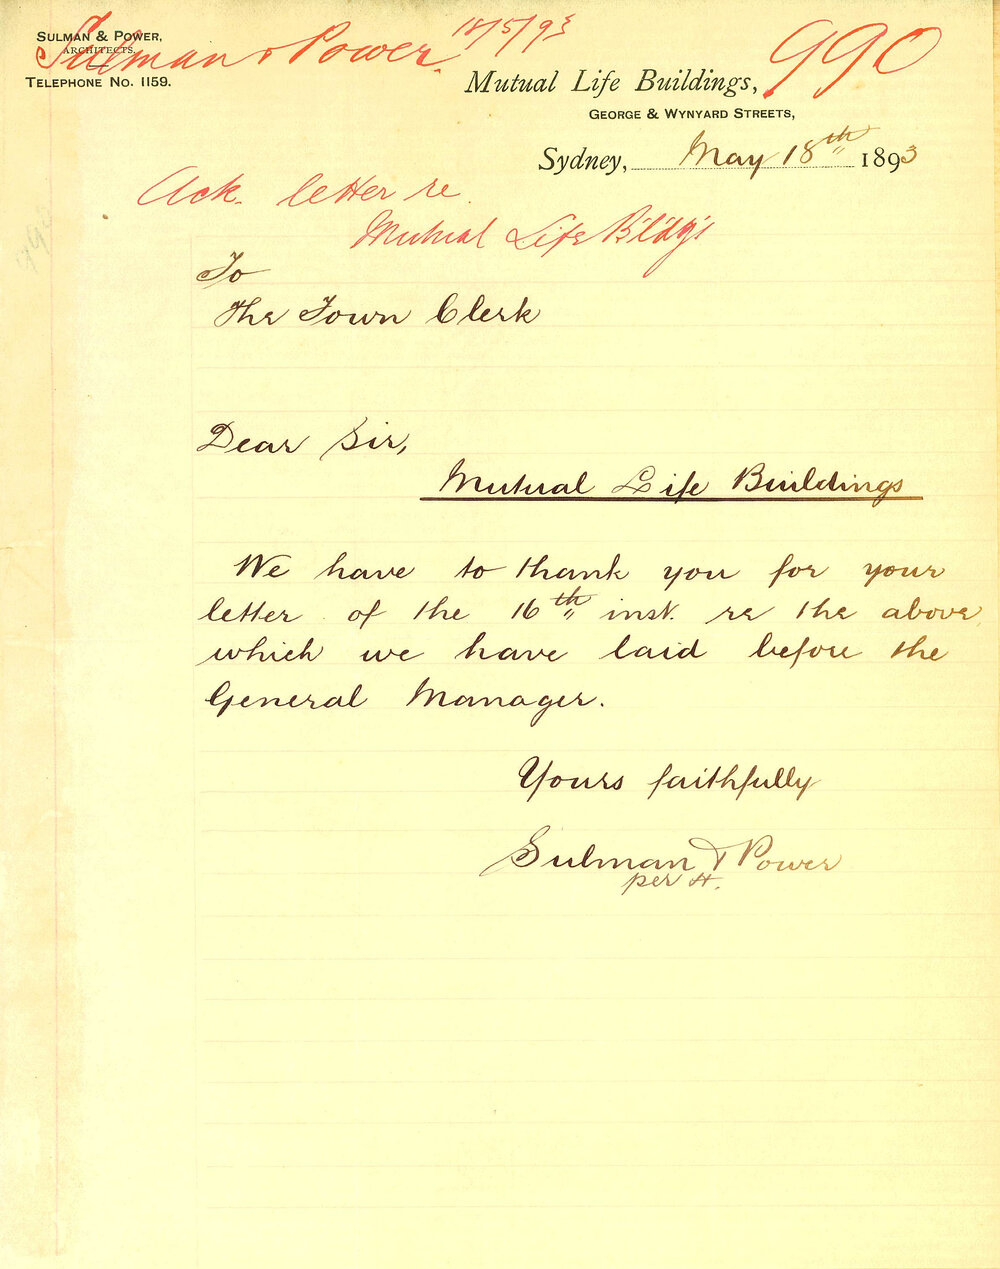 SULMAN & POWER,
ARCHITECTS.
TELEPHONE NO. 1159.
Sulman & Power. 18/5/93
990
Mutual Life Buildings,
GEORGE & WYNYARD STREETS,
Sydney, May 18th 1893
Ack. letter re
Mutual Life B'ld'g's
To
The Town Clerk
Dear Sir,
Mutual Life Buildings
We have to thank you for your
letter of the 16th inst. re the above,
which we have laid before the
General Manager.
Yours faithfully
Sulman & Power
per H.